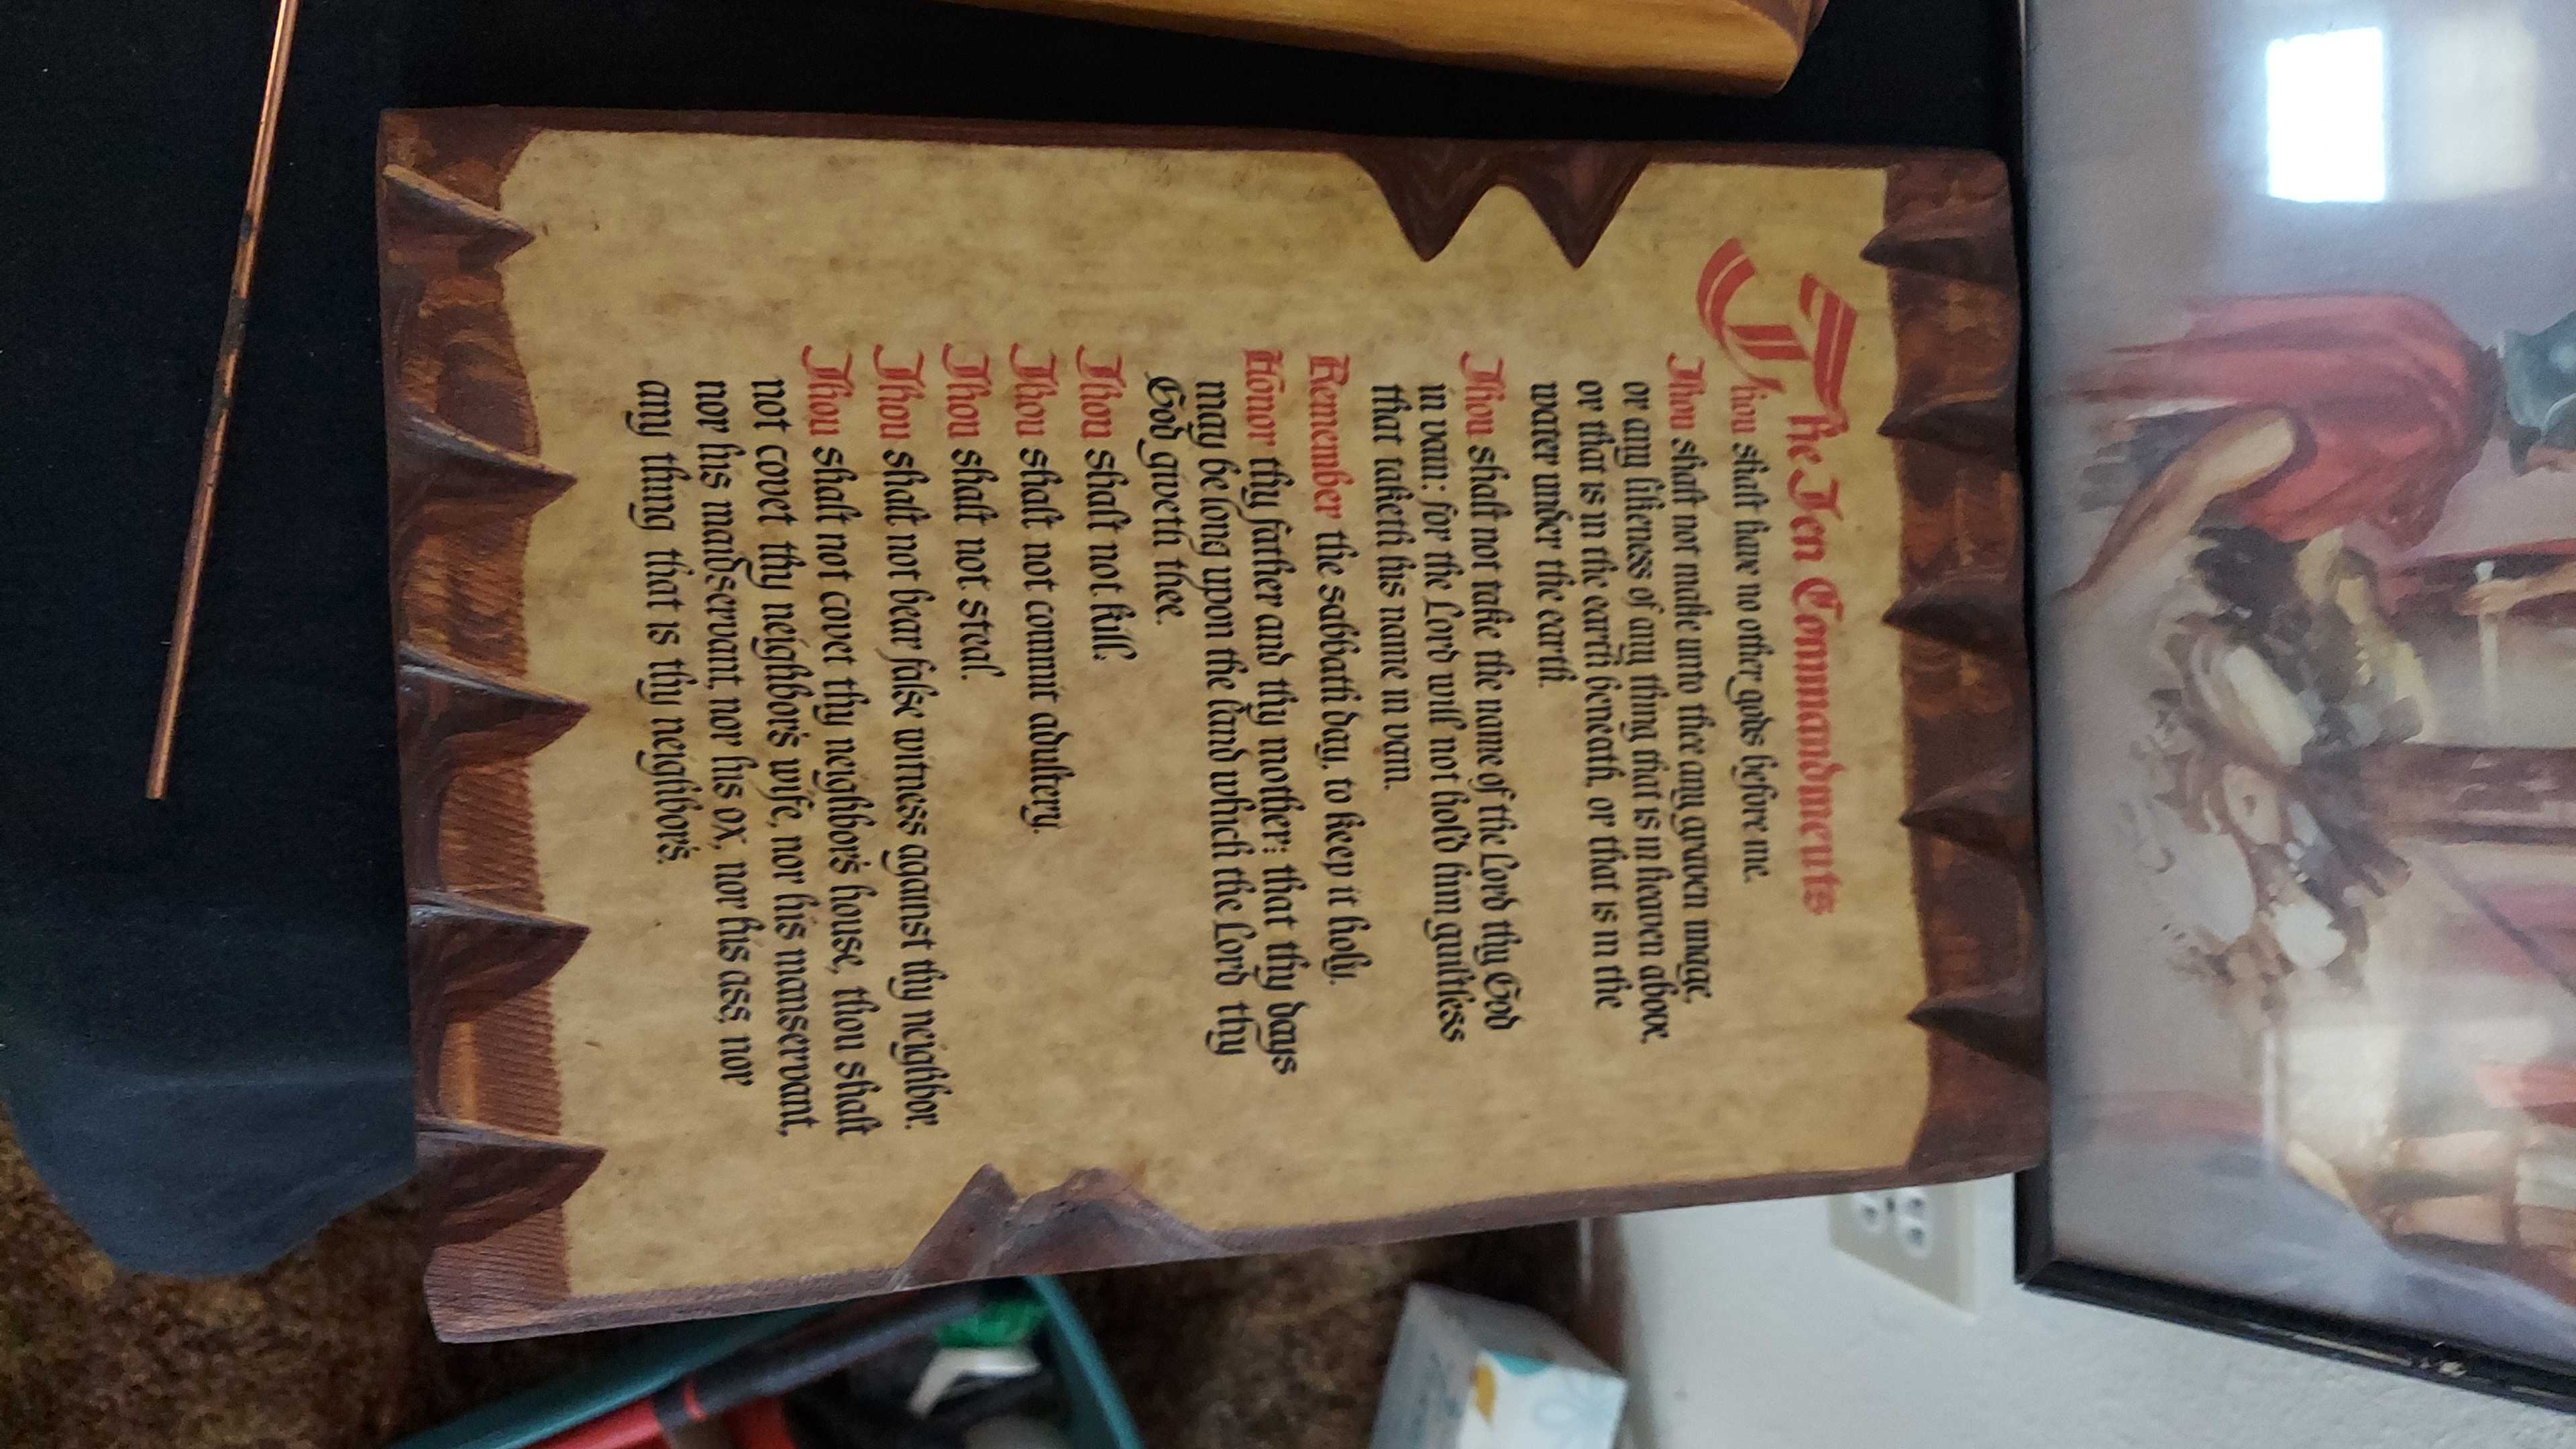 The Ten Commandments
Thou shalt have no other gods before me.
Thou shalt not make unto thee any graven image,
or any likeness of any thing that is in heaven above,
or that is in the earth beneath, or that is in the
water under the earth.
Thou shalt not take the name of the Lord thy God
in vain: for the Lord will not hold him guiltless
that taketh his name in vain.
Remember the sabbath day, to keep it holy.
Honor thy father and thy mother: that thy days
may be long upon the land which the Lord thy
God giveth thee.
Thou shalt not kill.
Thou shalt not commit adultery.
Thou shalt not steal.
Thou shalt not bear false witness against thy neighbor.
Thou shalt not covet thy neighbor's house, thou shalt
not covet thy neighbor's wife, nor his manservant,
nor his maidservant, nor his ox, nor his ass, nor
any thing that is thy neighbor's.